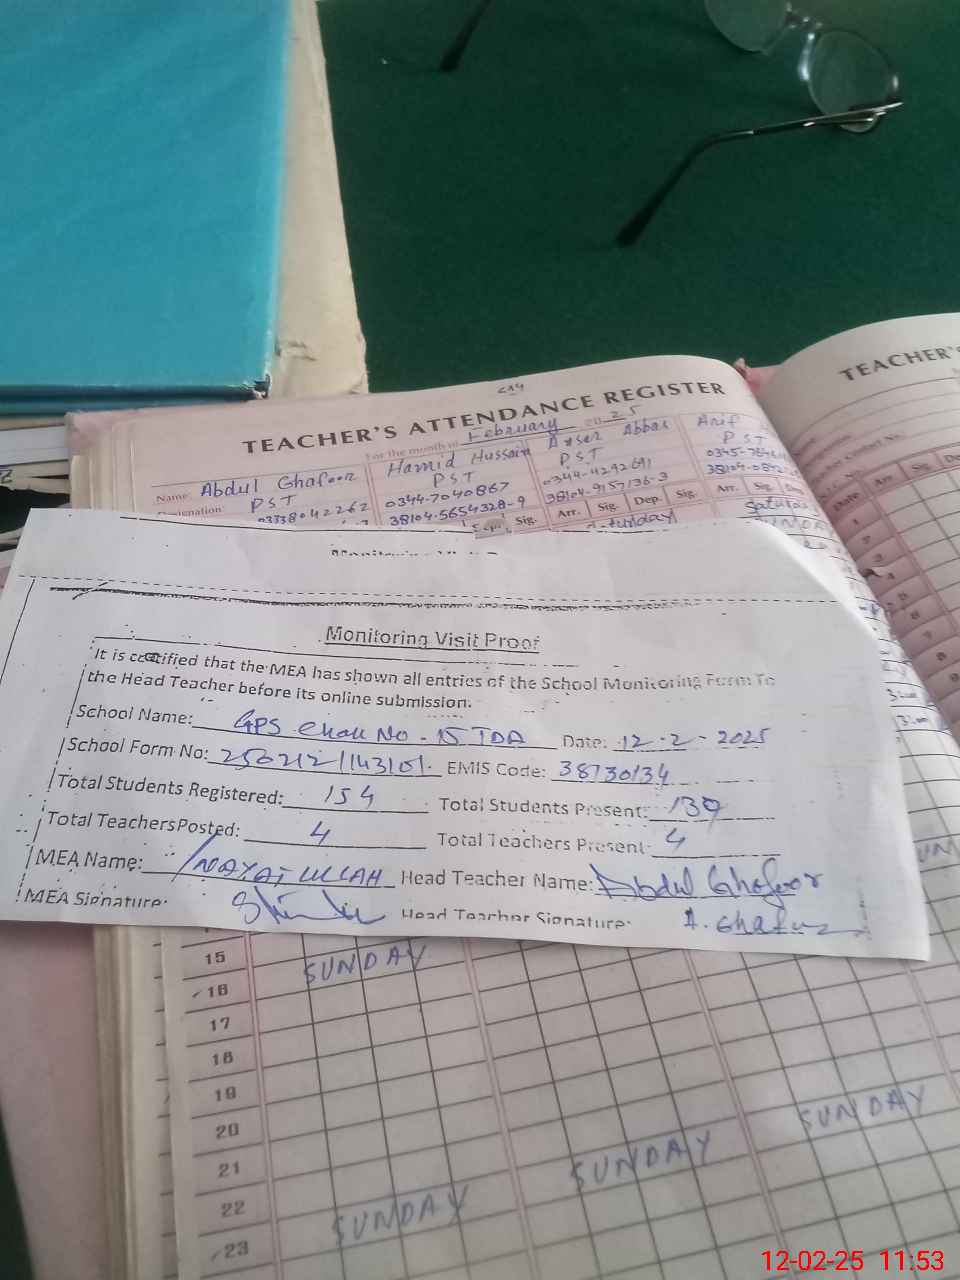 TEACHER'S ATTENDANCE REGISTER
For the month of February 2025
Name: Abdul Ghafoor Hamid Hussain Abbas Arif
Designation: PST PST PST PST
03338042262 0344-7040867 0344-4292691
38104-5654328-9 38104-9157136-3
Sig. Arr. Sig. Dep. Sig. Arr. Sig.
TEACHER'S
Monitoring Visit Proof
It is certified that the MEA has shown all entries of the School Monitoring Form To
the Head Teacher before its online submission.
School Name: GPS Chak No - 15 TDA Date: 12-2-2025
School Form No: EMIS Code: 38730134
Total Students Registered: 154 Total Students Present: 139
Total TeachersPosted: 4 Total Teachers Present: 4
MEA Name: INAYAT ULLAH Head Teacher Name: Abdul Ghafoor
MEA Signature: Head Teacher Signature: A. Ghafoor
15 SUNDAY
16
17
18
19
20 SUNDAY
21 SUNDAY
22 SUNDAY
23
12-02-25 11:53